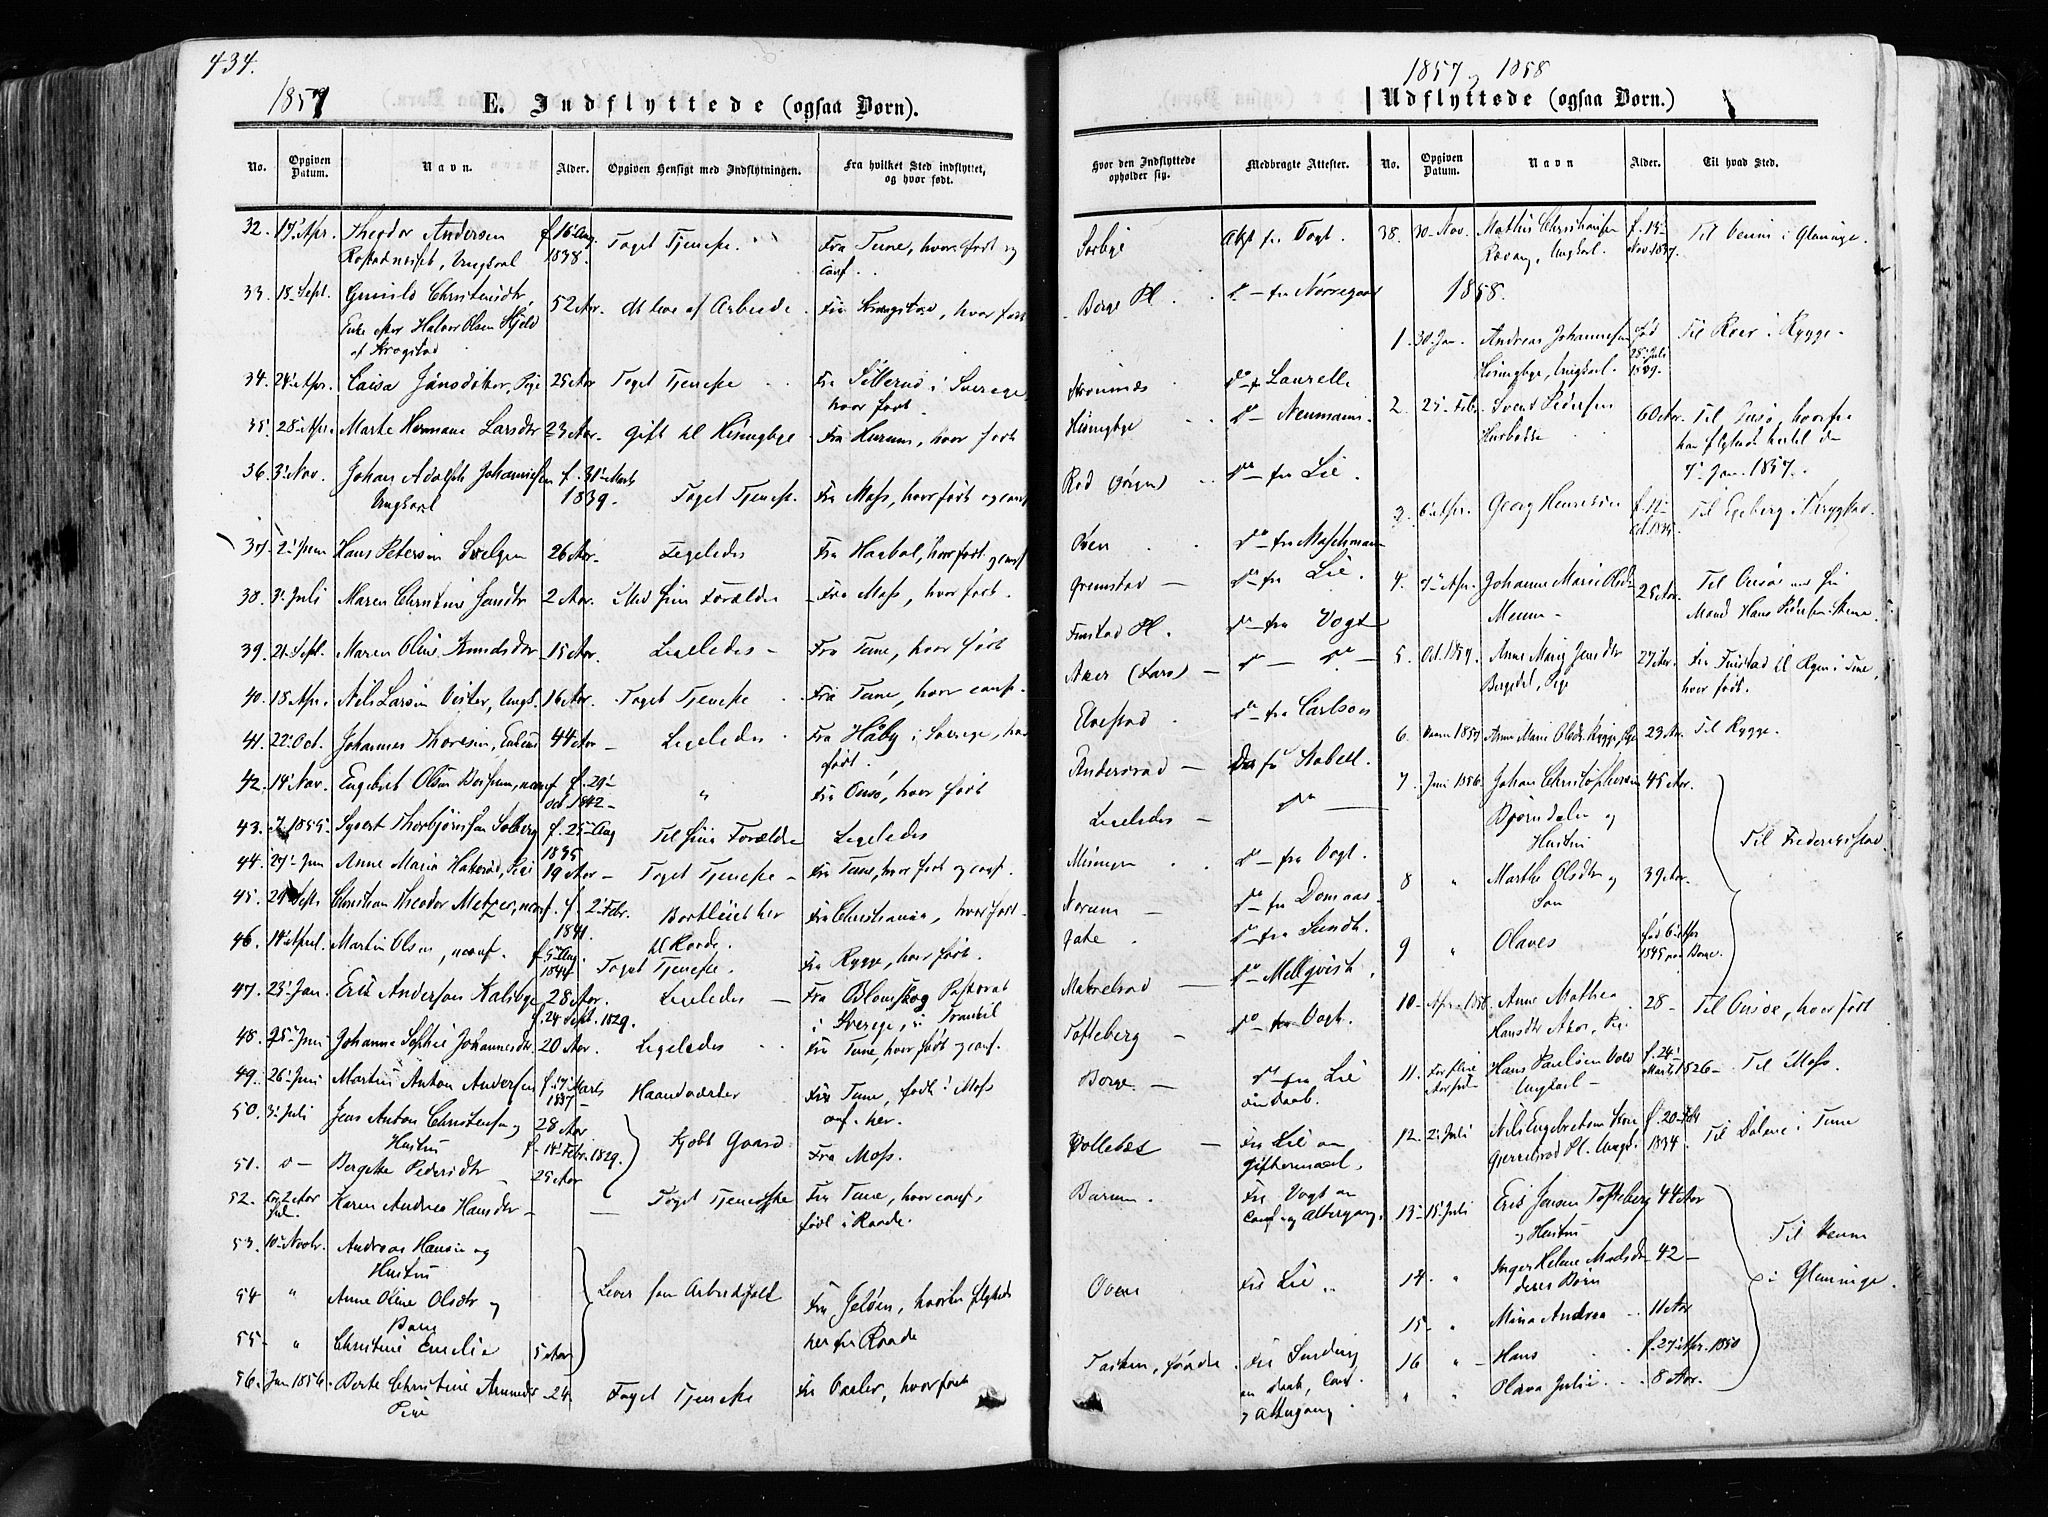 434.
1857
E. Indflyttede (ogsaa Børn).
No. Opgiven Datum. Navn. Alder. Opgiven Hensigt med Indflytningen. Fra hvilket Sted indflyttet, og hvor født.
32. 17' Apr. Theodor Andersen f. 16' Aug. Taget Tjeneste. Fra Tune, hvor født og
Ungkarl 1838. conf.
33. 18' Sept. Gunild Christensdtr. 52 Aar. At leve af Arbeide. Fra Krogstad, hvor født
Enke efter Halvor Olsen
af Krogstad
34. 24' Apr. Caisa Jönsdotter, Pige 25 Aar Taget Tjeneste Fra Sillerud i Sverege,
hvor født.
35. 28' Apr. Marte Hermane Larsdtr 23 Aar. Gift til Hisingbye. Fra Hurum, hvor født
36. 3' Nov. Johan Adolph Johannesen f. 31' Marts Taget Tjenest. Fra Moss, hvor født og conf
Ungkarl 1839.
37. 2' Juni Hans Petersen 26 Aar. Ligeledes Fra Haabøl, hvor født og conf
38. 3' Juli Maren Christine Jansdtr 2 Aar. Med sine Forældre Fra Moss, hvor født.
39. 21' Sept. Maren Oline Knudsdtr 15 Aar. Ligeledes Fra Tune, hvor født
40. 18 Apr. Nils Larsen Vister, Ungk. 16 Aar. Taget Tjeneste Fra Tune, hvor conf.
41. 22' Oct. Johannes Thoresen, 44 Aar Ligeledes Fra Håby i Sverege, hvor
født.
42. 14' Nov. Engebret Olsen f. 29' " Fra Onsö, hvor født
Oct. 1842
43. 1855. Syvert Thorbjørnsen Solberg f. 25' Aug Til sine Forældre Ligeledes
1835
44. 27' Juni Anne Maria Pige 19 Aar Taget Tjeneste Fra Tune, hvor født og conf.
45. 29 Sept. Christian Theodor Metzer, f. 2' Febr. Bortleiet her Fra Christiania, hvor født
1841. til Raade.
46. 14' April. Martin Olsen, f. 5' Aug Taget Tjeneste. Fra Rygge, hvor født.
1844
47. 23' Jan. Eric Andersen 28 Aar. Ligeledes Fra Blomskog Pastorat
f. 24 Sept. 1829. i Sverege, i
48. 25' Juni Johanne Sophie Johannesdtr. 20 Aar. Ligeledes Fra Tune, hvor født og conf.
49. 26' Juni Martin Anton Andersen f. 17' Marts Haandværker Fra Tune, født i Moss
1837 conf. her.
50. 3' Juli Jens Anton Christensen og 28 Aar Kjøbt Gaard Fra Moss.
Hustru f. 14' Febr. 1829.
51. d- Bergette Pedersdtr 25 Aar
52. for 2 Aar Karen Andrea Hansdtr Taget Tjeneste Fra Tune, hvor conf.
født i Raade.
53. 10' Novbr. Andreas Hansen og
Hustru
54 " Anne Oline Olsdtr og Lever som Arbeidsfolk Fra Jeløen, hvorhen flyttede
Barn her fra Raade
55 " Christine Emelie 5 Aar
56. Jan 1856. Berte Christine 24. Taget Tjeneste Fra hvor født
Pige
1857 og 1858
Udflyttede (ogsaa Børn.)
Hvor den Indflyttede opholder sig. Medbragte Attester. No. Opgiven Datum. Navn Alder. Til hvad Sted.
Sorbye Att fra Vogt. 38. 30' Nov. Mathis Christiansen f. 15' Til Veum i Glemminge.
Ungkarl. Nov 1837.
Borge Pl. do - fra Nørregaard 1858.
1. 30 Jan. Andreas Johannesen Fød Til Roer i Rygge
Hisingbye, Ungkarl. 25' Juli
do fr Laurelli
Hisingbye do Neumann. 2. 25' Feb. Svend Pedersen 60 Aar. Til Onsö, hvorfra
han flyttede hertil den
7' Jan. 1857.
Rød (Jørgen) do fra Lie.
3. 6' Apr. Georg Henriksen Til Egeberg i Krygstad.
Oven do fra Maschmann
Grimstad do fra Lie. 4. 7' Apr. Johanne Marie Olsd. 25 Aar. Til Onsö med sin
Mand Hans Pedersen
Finstad Pl. do fra Vogt
Aker (Lars) do do 5. Oct. 1857. Anne Marie Jensdtr 27 Aar. Fra Finstad til i Tune,
Pige hvor født.
Elvestad do fra Carlson
6. 1857 Anne Marie Olsdtr Rygge, Pige 23 Aar Til Rygge.
Anderørød Do fra Stabell 7. Juni 1856. Johan Christophersen 45 Aar.
Bjørndalen og
Hustru Til Frederikstad.
Ligeledes do
Missingen do fra Vogt. 8 " Marthe Olsdtr og 39 Aar.
Søn
Norum do fra Domaas.
Jate do fra Sundt. 9 " Olaves fød 6' Apr
1845
Makrelrød do Mellqvist. 10. Apr. 1858. Anne Mathea 28 Til Onsøe, hvor født
Hansdtr Aker, Pige
Tofteberg do fra Vogt.
Borge do fra Lie 11. Hans Paulsen f. 24' Til Moss.
om daab. Ungkarl Marts 1826
Fra Lie om 12. 2' Juli Nils Engebretsen f. 20' Feb Til Dalene i Tune
Giftermaal. Pl. Ungk. 1834
Burum. Fra Vogt om
Conf. og Altergang. 13 15' Juli Eric Jensen Tofteberg 44 Aar
og Hustru Til Veum
Oven Fra Lie 14. " Inger Helene Madsdtr 42 i Glemminge.
deres Børn
15 " Mina Andrea 11 Aar
Fra 16 " Hans f. 27' Apr. 1850
om daab, Conf. " " Olava Julie 8 Aar.
og Altergang